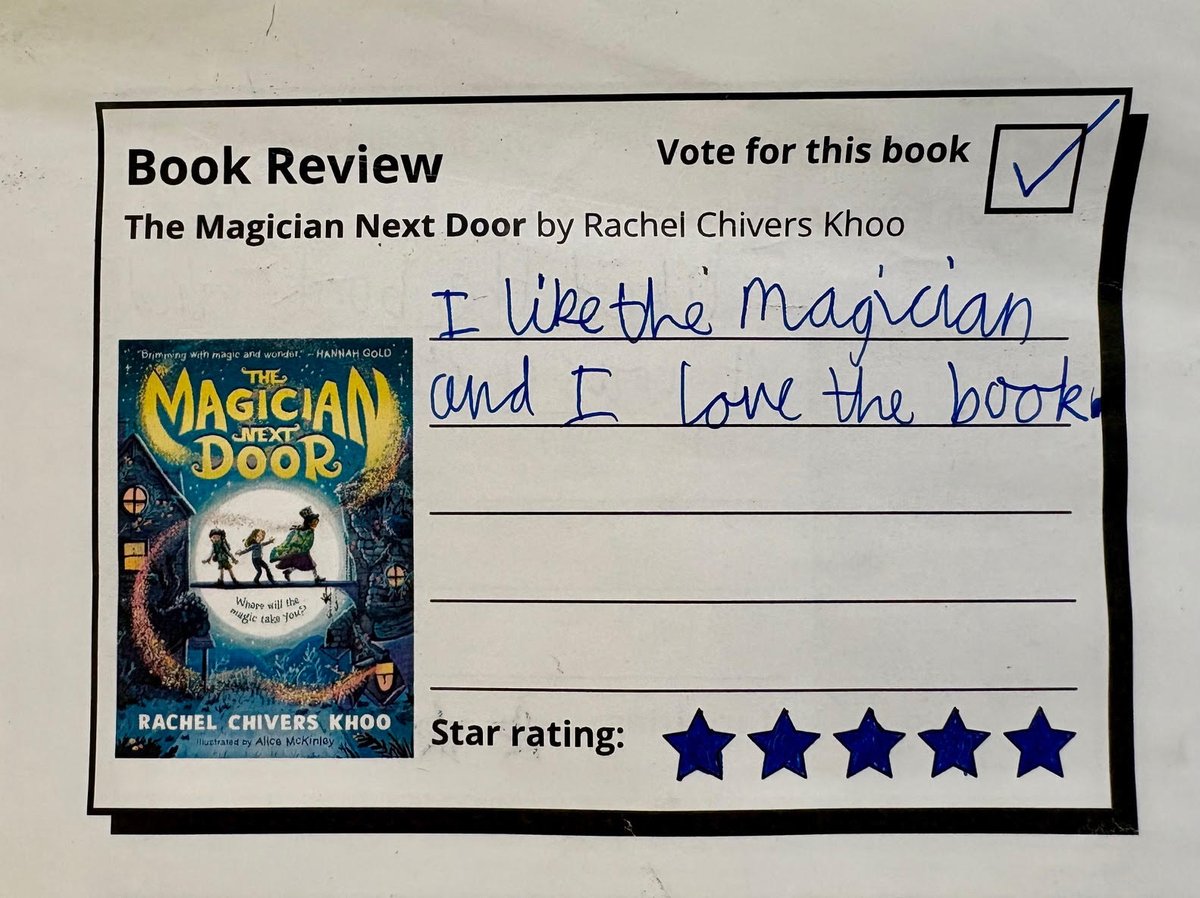 Book Review
Vote for this book
The Magician Next Door by Rachel Chivers Khoo
I like the magician
and I love the book.
"Brimming with magic and wonder." — HANNAH GOLD
THE
MAGICIAN
NEXT
DOOR
Where will the
magic take you?
RACHEL CHIVERS KHOO
Illustrated by Alice McKinley
Star rating: